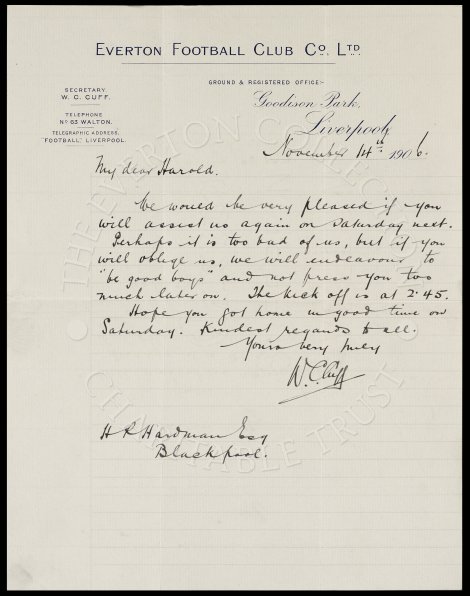 EVERTON FOOTBALL CLUB CO. LTD.
GROUND & REGISTERED OFFICE:-
Goodison Park,
Liverpool,
SECRETARY.
W. C. CUFF.
TELEPHONE
NO 63 WALTON.
TELEGRAPHIC ADDRESS,
"FOOTBALL" LIVERPOOL.
November 14th 1906.
My dear Harold.
We would be very pleased if you
will assist us again on Saturday next.
Perhaps it is too bad of us, but if you
will oblige us, we will endeavour to
"be good boys" and not press you too
much later on. The kick off is at 2.45.
Hope you got home in good time on
Saturday. Kindest regards to all.
Yours very truly
W. C. Cuff
H P Hardman Esq
Blackpool.
THE EVERTON COLLECTION
CHARITABLE TRUST